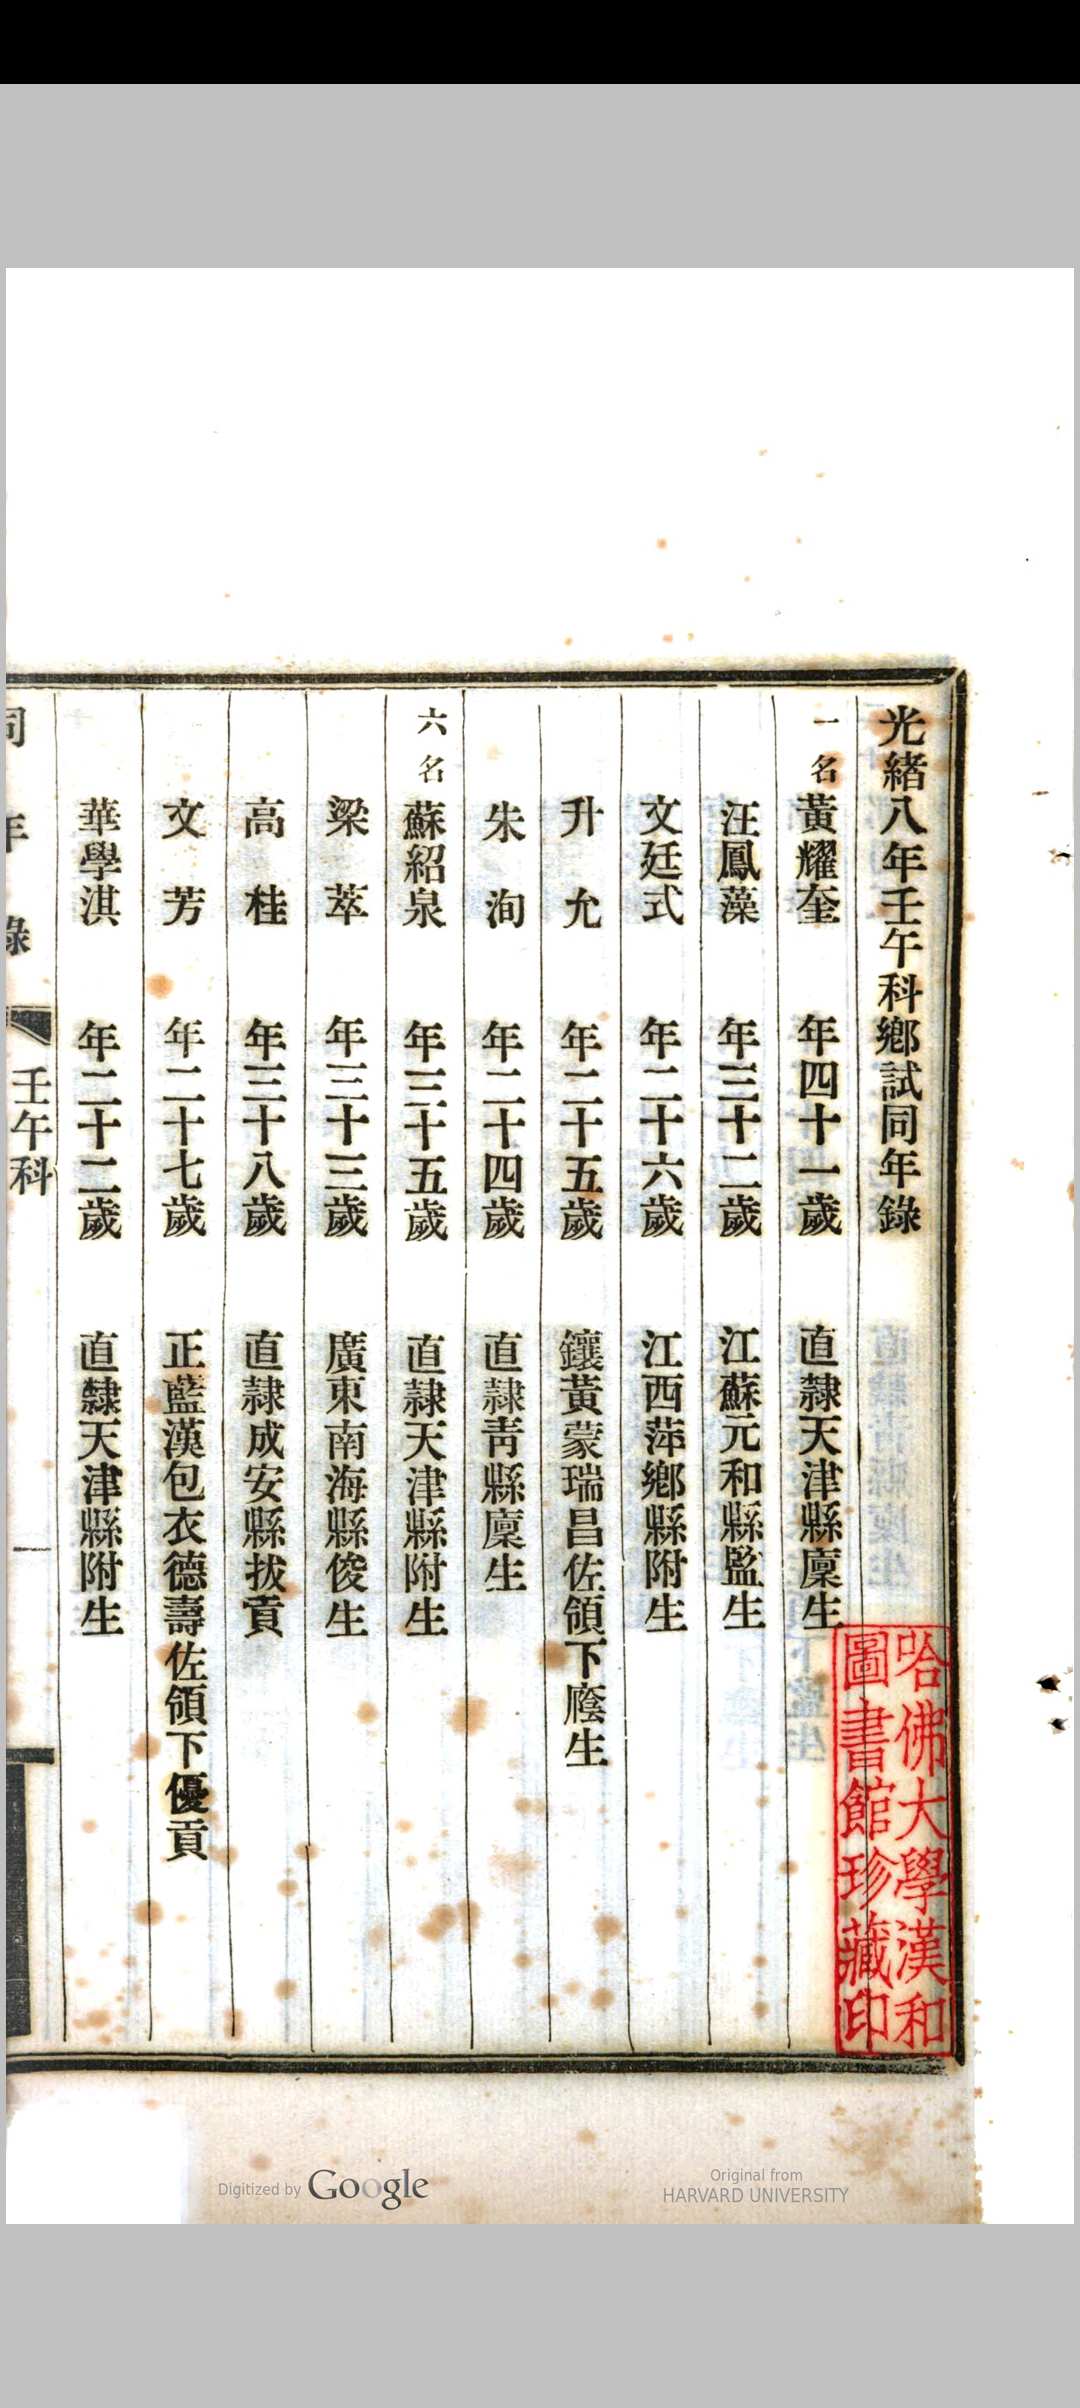 光緒八年壬午科鄉試同年錄
一名 黃耀奎 年四十一歲 直隸天津縣廩生
汪鳳藻 年三十二歲 江蘇元和縣監生
文廷式 年二十六歲 江西萍鄉縣附生
升允 年二十五歲 鑲黃蒙瑞昌佐領下廕生
朱洵 年二十四歲 直隸青縣廩生
六名 蘇紹泉 年三十五歲 直隸天津縣附生
梁萃 年三十三歲 廣東南海縣俊生
高桂 年三十八歲 直隸成安縣拔貢
文芳 年二十七歲 正藍漢包衣德壽佐領下優貢
華學淇 年二十二歲 直隸天津縣附生
同年錄 壬午科 一
哈佛大學漢和
圖書館珍藏印
Digitized by Google
Original from
HARVARD UNIVERSITY